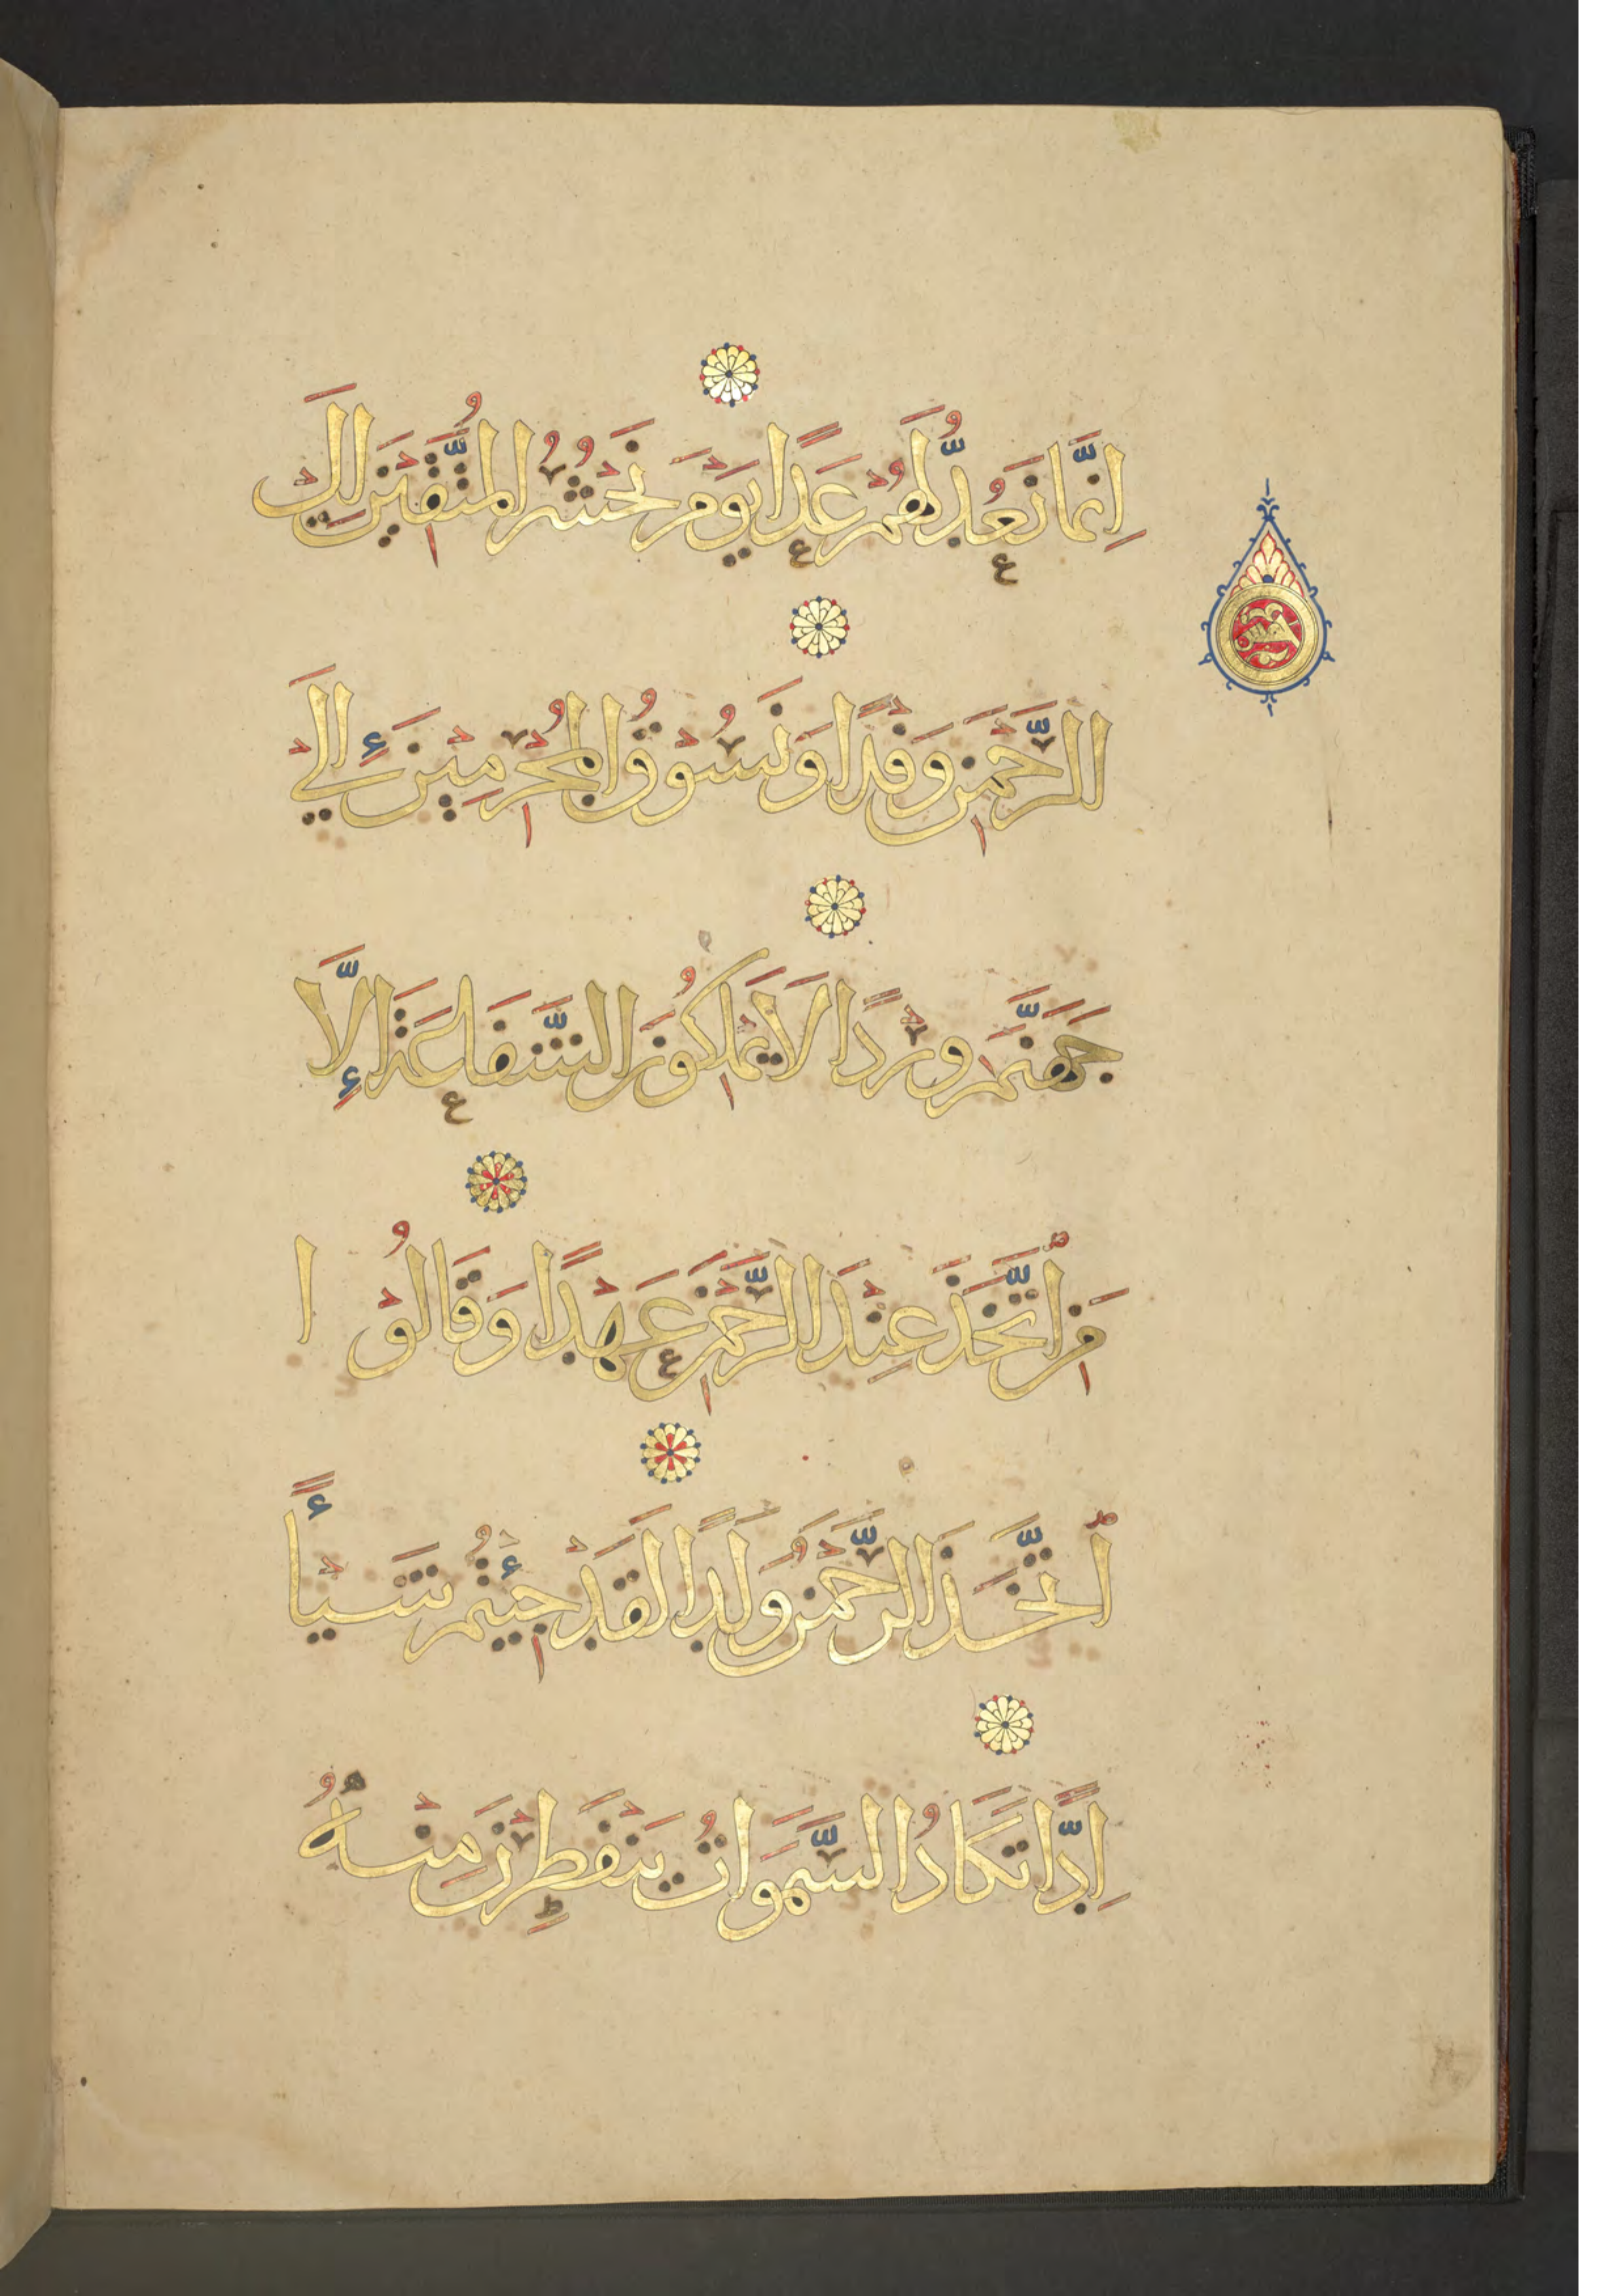 اِنَّمَا نَعُدُّ لَهُمْ عَدًّا يَوْمَ نَحْشُرُ الْمُتَّقِيْنَ اِلَي
الرَّحْمَنِ وَفْدًا وَنَسُوْقُ الْمُجْرِمِيْنَ إِلَي
جَهَنَّمَ وِرْدًا لَا يَمْلِكُوْنَ الشَّفَاعَةَ إِلَّا
مَنِ اتَّخَذَ عِنْدَ الرَّحْمَنِ عَهْدًا وَقَالُوْا
اتَّخَذَ الرَّحْمَنُ وَلَدًا لَقَدْ جِئْتُمْ شَيْأً
اِدًّا تَكَادُ السَّمَوَاتُ يَنْفَطِرْنَ مِنْهُ